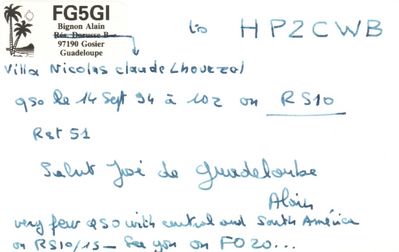 FG5GI
Bignon Alain
Rés. Darusse B
97190 Gosier
Guadeloupe
to HP2CWB
Villa Nicolas Claude
qso le 14 Sept 94 à 10z on RS10
Rst 51
Salut José de Guadeloupe
Alain
very few QSO with central and South América
on RS10/15 - See you on FO20...